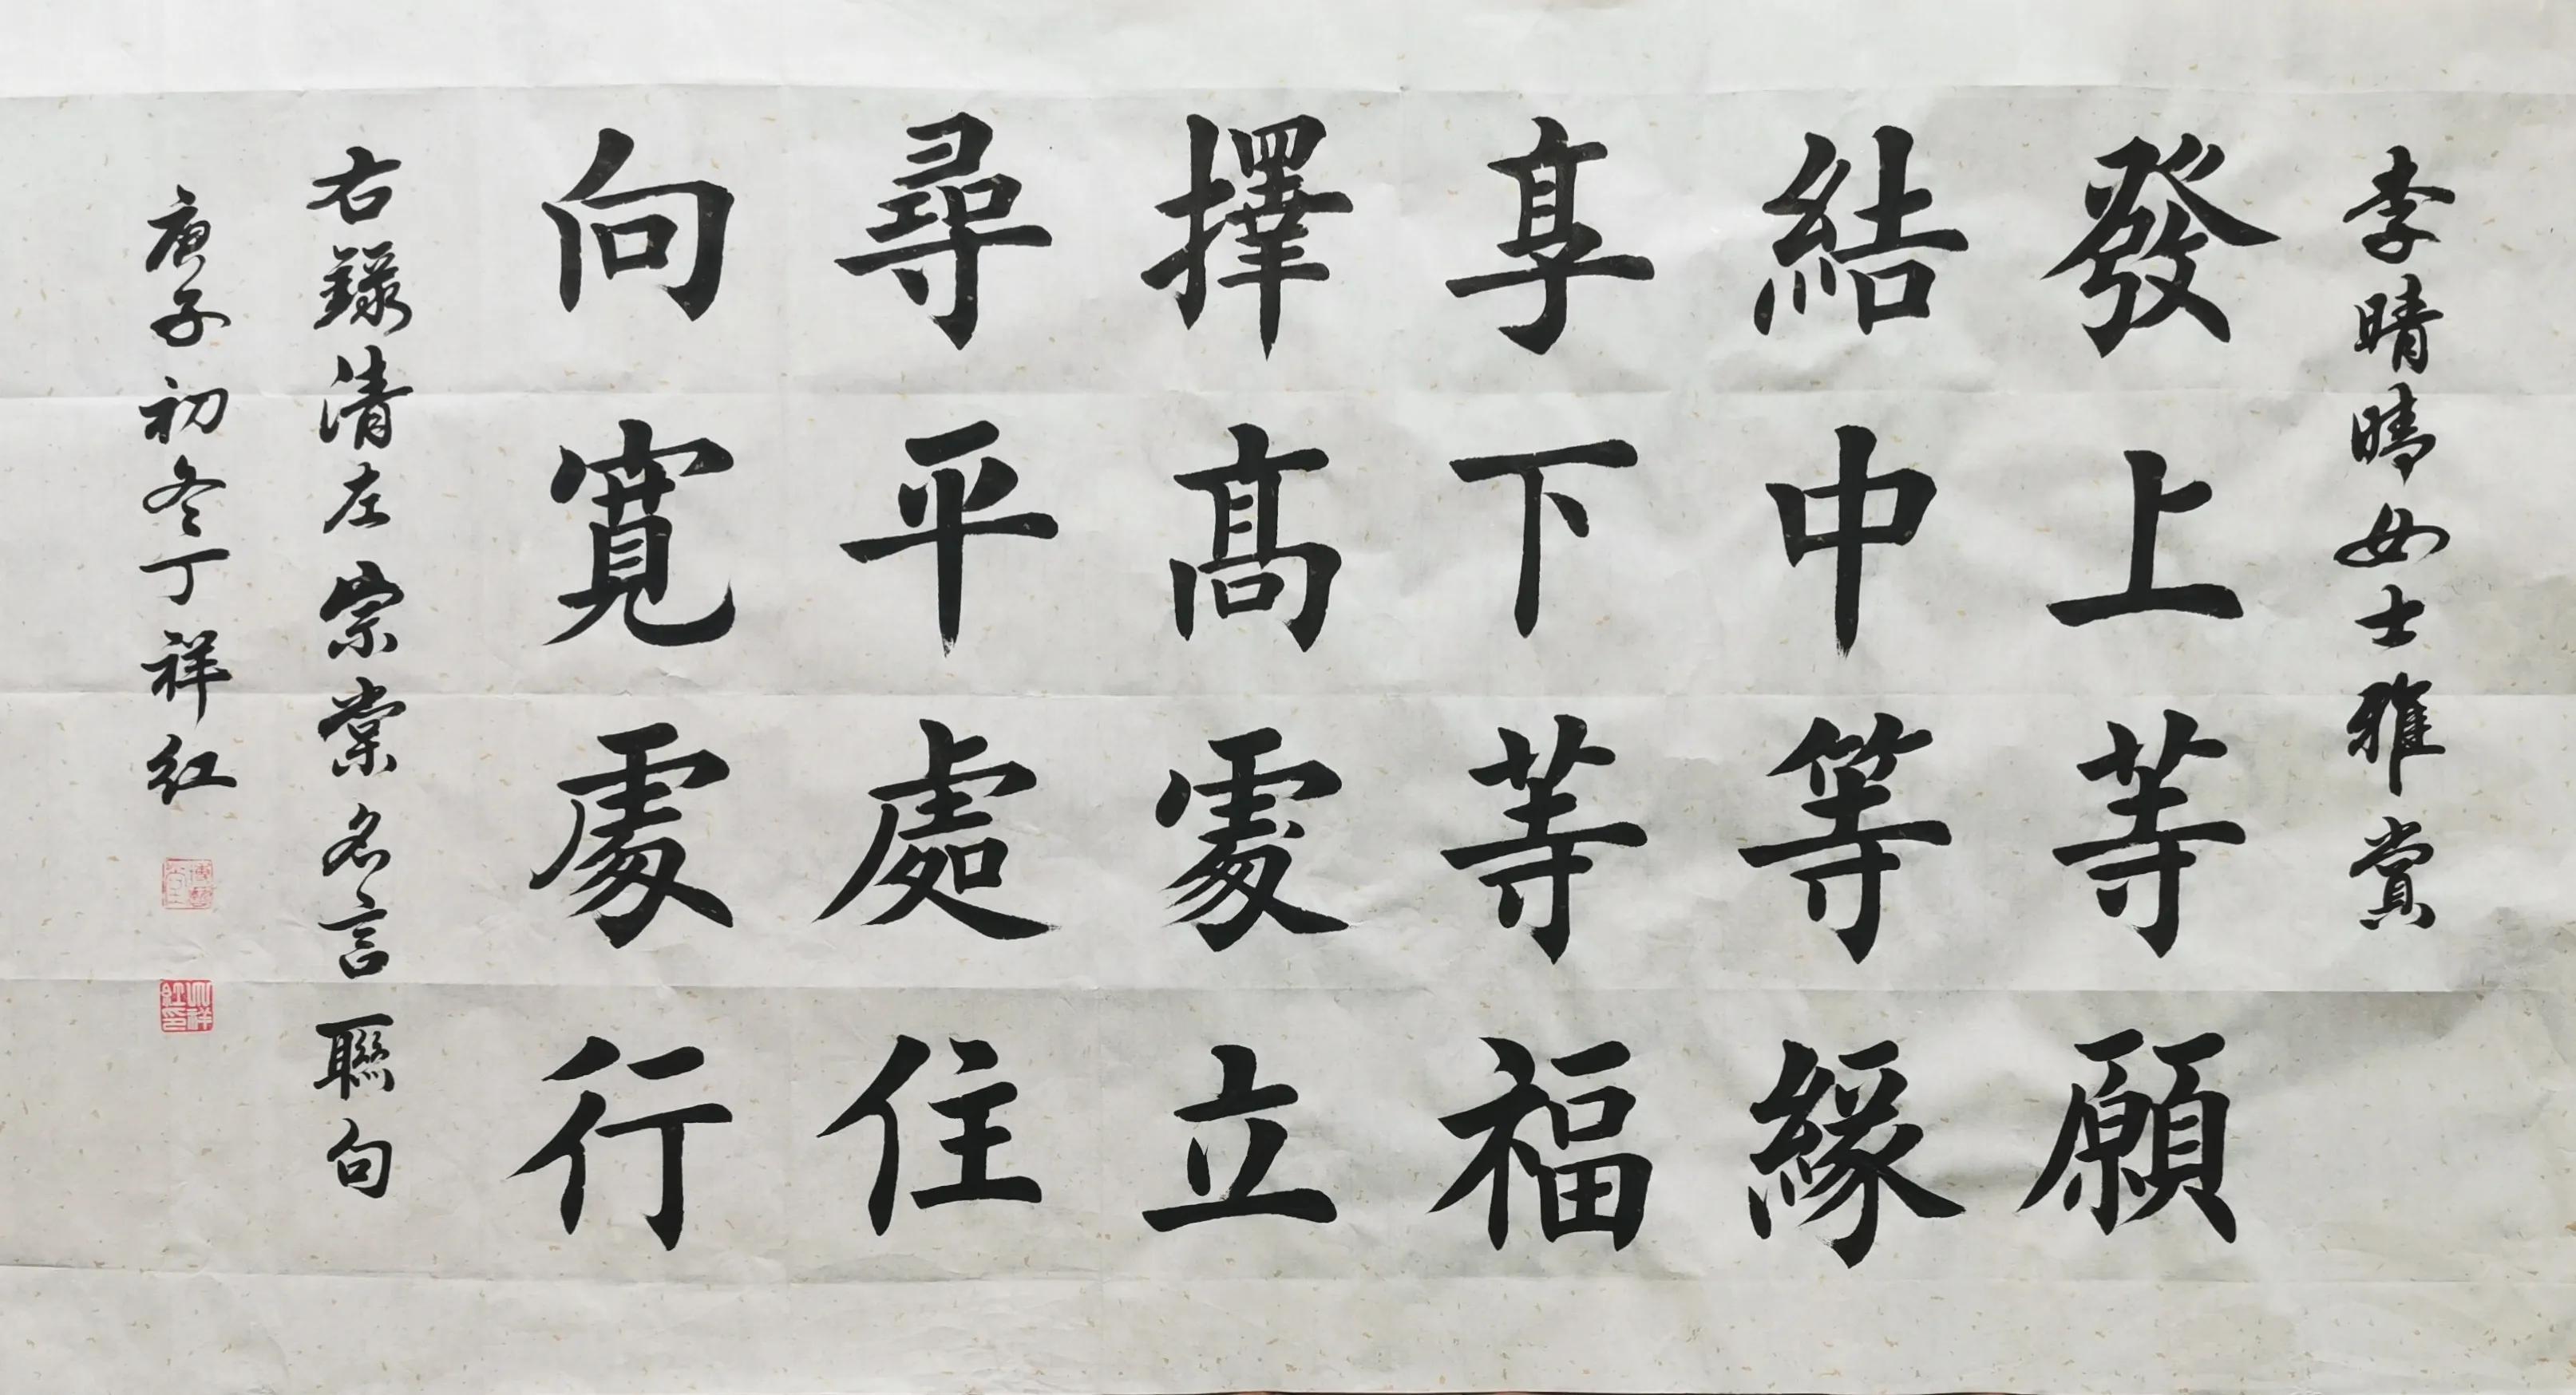 李晴晴女士雅賞
發上等願
結中等緣
享下等福
擇高處立
尋平處住
向寬處行
右錄清左宗棠名言聯句
庚子初冬丁祥紅